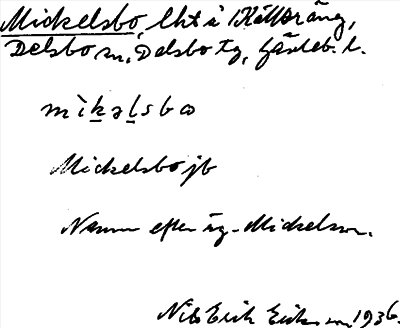 Mickelsbo, lht å Källeräng,
Delsbo sn, Delsbo tg, Gävleb. l.
mìkəlsbω
Mickelsbo jb
Namn efter äg. Mickelson.
Nils Erik Eriksson 1936.